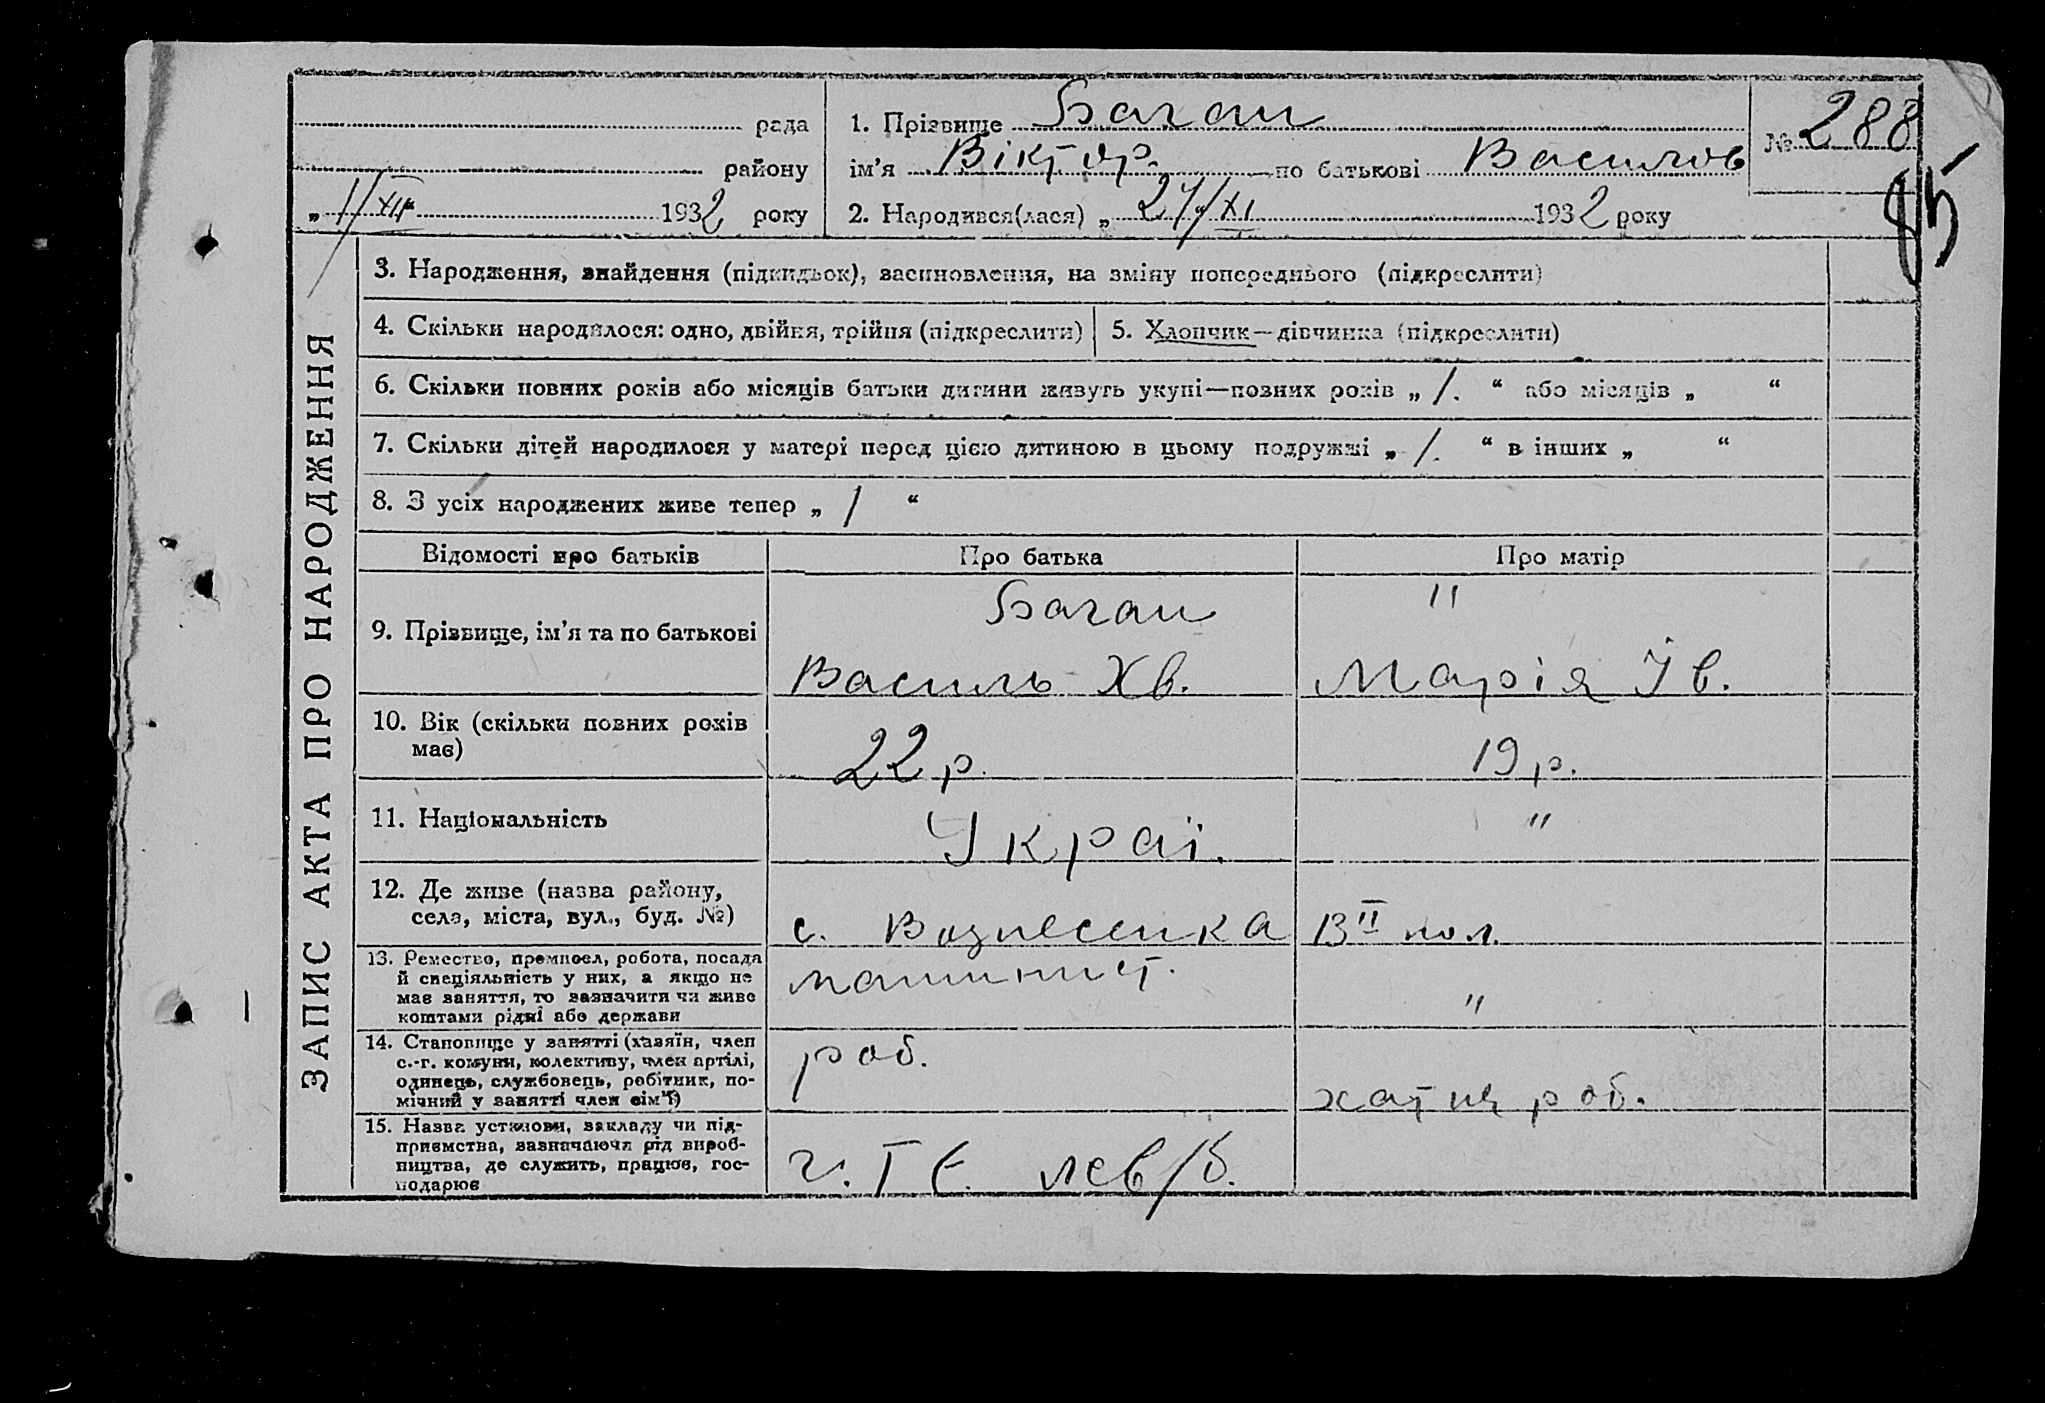 рада
району
„ 1/XII 1932 року
1. Прізвище Баган
ім'я Віктор. по батькові Васильов
2. Народився(лася) „ 27/XI 1932 року
№ 288
85
ЗАПИС АКТА ПРО НАРОДЖЕННЯ
3. Народження, знайдення (підкидьок), засиновлення, на зміну попереднього (підкреслити)
4. Скільки народилося: одно, двійня, трійня (підкреслити)
5. Хлопчик—дівчинка (підкреслити)
6. Скільки повних років або місяців батьки дитини живуть укупі—повних років „ 1. “ або місяців „ “
7. Скільки дітей народилося у матері перед цією дитиною в цьому подружжі „ 1. “ в інших „ “
8. З усіх народжених живе тепер „ 1 “
Відомості про батьків
Про батька
Про матір
9. Прізвище, ім'я та по батькові
Баган
Василь Хв.
"
Марія Ів.
10. Вік (скільки повних років
має)
22 р.
19 р.
11. Національність
Украї.
"
12. Де живе (назва району,
села, міста, вул., буд. №)
с. Вознесенка
13 II пол.
13. Ремество, промисел, робота, посада
й спеціяльність у них, а якщо не
має заняття, то зазначити чи живе
коштами рідні або держави
машинист.
"
14. Становище у занятті (хазяїн, член
с.-г. комуни, колективу, член артілі,
одинець, службовець, робітник, по-
мічний у занятті член сім'ї)
роб.
хатня роб.
15. Назва установи, закладу чи під-
приємства, зазначаючи рід вироб-
ництва, де служить, працює, гос-
подарює
лев/б.